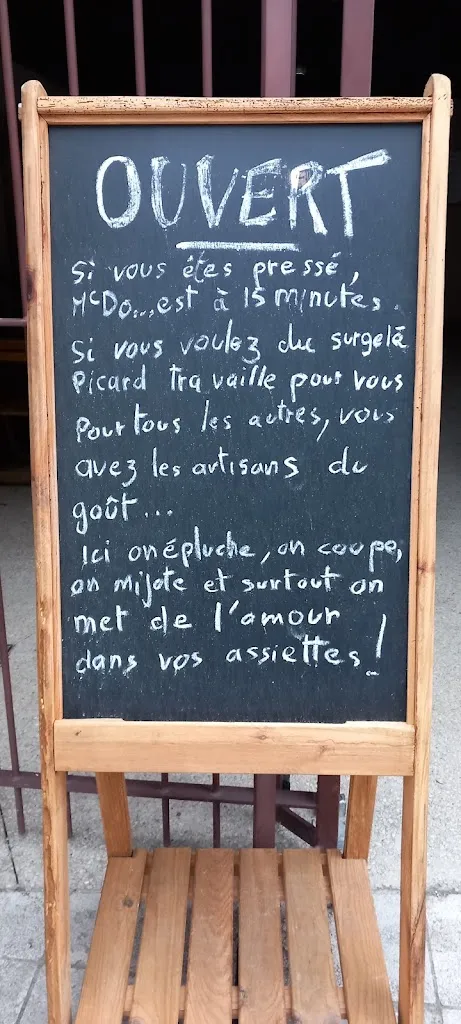 OUVERT
Si vous êtes pressé,
McDo...est à 15 minutes.
Si vous voulez du surgelé
Picard travaille pour vous
Pour tous les autres, vous
avez les artisans du
goût...
Ici on épluche, on coupe,
on mijote et surtout on
met de l'amour
dans vos assiettes!